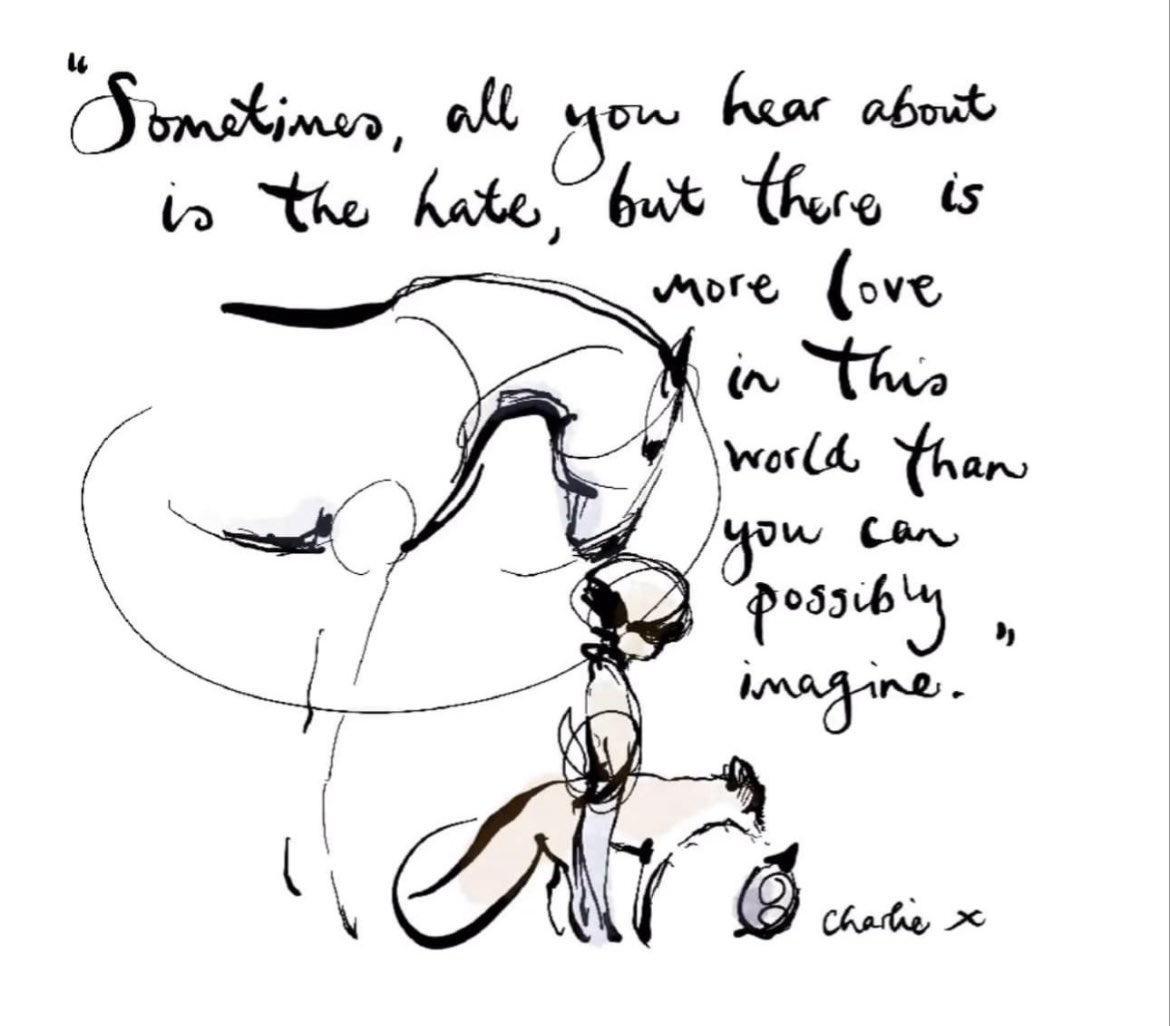 "Sometimes, all you hear about
is the hate, but there is
more love
in this
world than
you can
possibly
imagine."
Charlie x